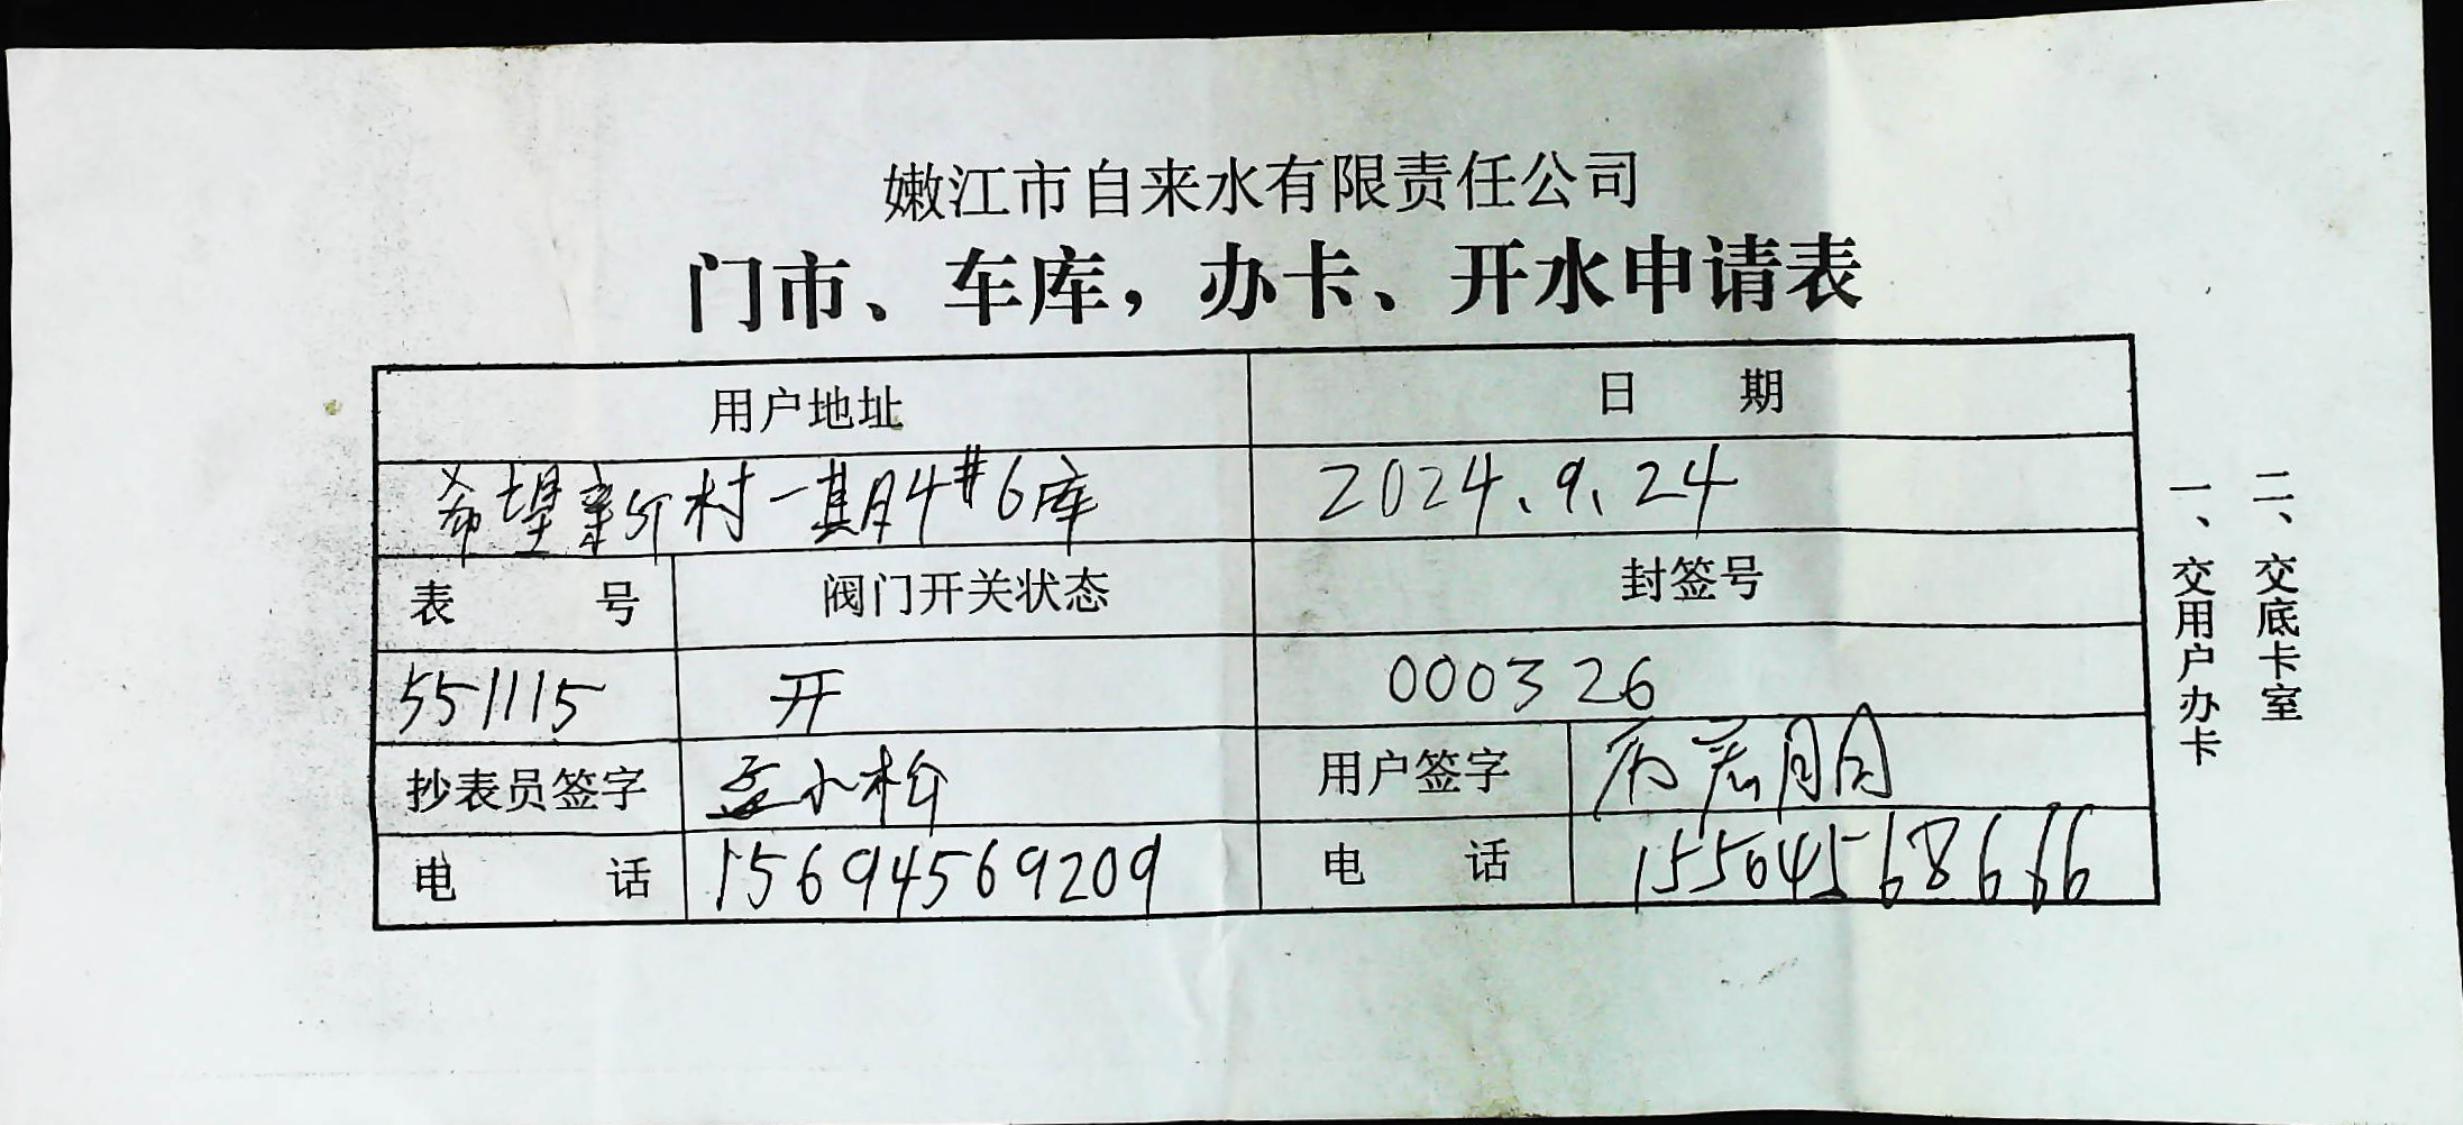 嫩江市自来水有限责任公司
门市、车库，办卡、开水申请表
用户地址 日 期
希望新村一期4#6库 2024.9.24
表 号 阀门开关状态 封签号
551115 开 000326
抄表员签字 孟小松 用户签字
电 话 15694569209 电 话 15504568666
一、交用户办卡
二、交底卡室